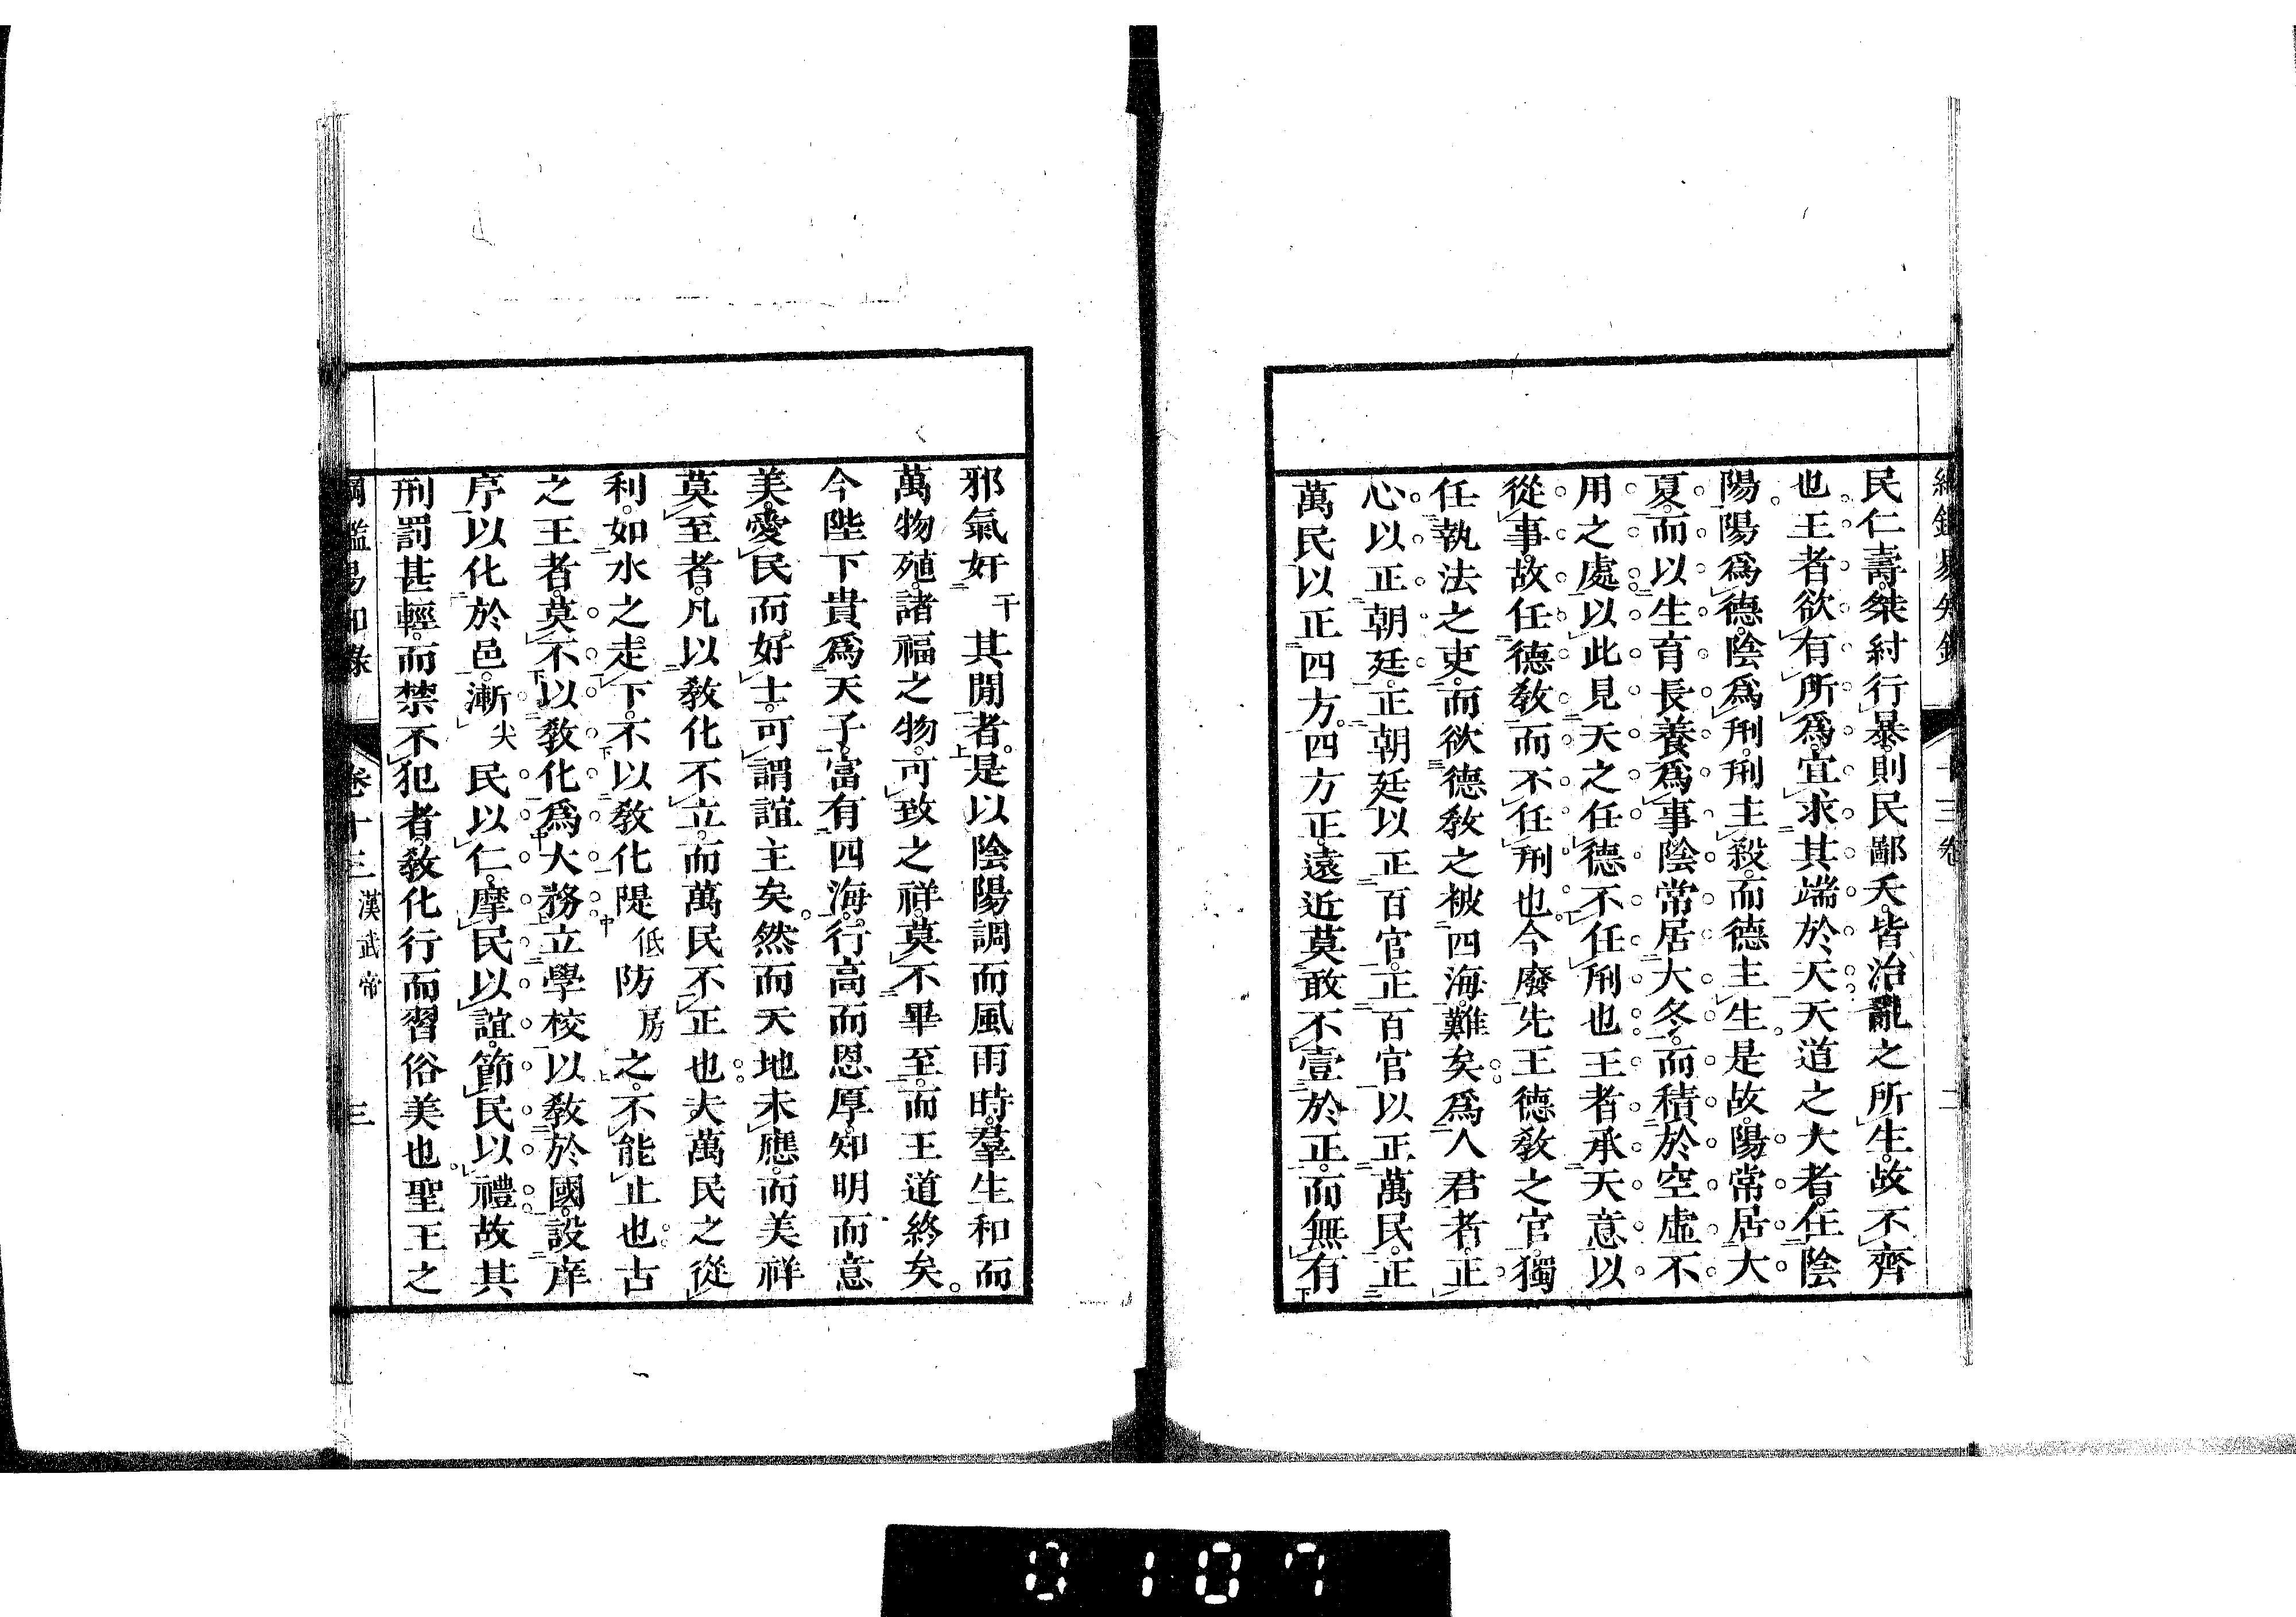 民仁壽桀紂行暴則民鄙夭皆治亂之所生故不齊
也王者欲有所爲宜求其端於天天道之大者在陰
陽陽爲德陰爲刑刑主殺而德主生是故陽常居大
夏而以生育長養爲事陰常居大冬而積於空虛不
用之處以此見天之任德不任刑也王者承天意以
從事故任德教而不任刑也今廢先王德教之官獨
任執法之吏而欲德教之被四海難矣爲人君者正
心以正朝廷正朝廷以正百官正百官以正萬民正
萬民以正四方四方正遠近莫敢不壹於正而無有
邪氣奸干其閒者是以陰陽調而風雨時羣生和而
萬物殖諸福之物可致之祥莫不畢至而王道終矣
今陛下貴爲天子富有四海行高而恩厚知明而意
美愛民而好士可謂誼主矣然而天地未應而美祥
莫至者凡以教化不立而萬民不正也夫萬民之從
利如水之走下不以教化隄低防房之不能止也古
之王者莫不以教化爲大務立學校以教於國設庠
序以化於邑漸尖民以仁摩民以誼節民以禮故其
刑罰甚輕而禁不犯者教化行而習俗美也聖王之
綱鑑易知錄 卷十三 漢武帝 三
0107